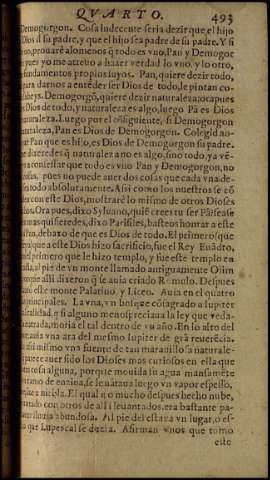 QVARTO. 493
Demogorgon. Cosa indecente seria dezir que el hijo
Dios d su padre, y que el hijo sea padre de su padre. Y si
no, prouarè alomenos q̃ todo es vno. Pan y Demogor
pues yo me atreuo a hazer verdad lo vno, y lo otro,
fundamentos propios tuyos. Pan, quiere dezir todo,
para darnos a entēder ser Dios de todo, le pintan co
Demogorgõ, quiere dezir naturaleza, ocapues
Dios de todo, y naturaleza es algo, luego Pā es Dios
naturaleza. Luego por el cõsiguiente, si Demogorgon
naturaleza, Pan es Dios de Demogorgon. Colegid ao-
Pan que es hijo, es Dios de Demogorgon su padre.
duederes q̃ naturaleza no es algo, sino todo, ya vē-
confessar que todo es vno Pan y Demogorgon, no
cosas, pues no puede auer dos cosas que cada vna de-
todo absolutamente. Assi como los nuestros se cõ
con este Dios, mostrarè lo mismo de otros Dioses
Ora pues, dixo Syluano, quiē crees tu ser
mas quisieredes, dixo Parisiles, basteos honrar a este
debaxo de que es Dios de todo. El primero que
que a este Dios hizo sacrificio, fue el Rey Euãdro,
primero que le hizo templo, y fue este templo en
al pie de vn monte llamado antiguamente Olim
alli dixeron q̃ se auia criado Romulo. Despues
este monte Palatino y Liceo. Auia en el quatro
principales. La vna, vn bosque cõsagrado a Iupiter
si alguno menospreciaua la ley que veda-
entrada, moria el tal dentro de vn año. En lo alto del
auia vna ara del mesmo Iupiter de grā reuerēcia.
assi mismo vna fuente de tan marauillosa naturale-
quiere auer sido los Dioses mas curiosos en ella que
cosa alguna, porque mouida su agua mansamēte
ramo de enzina, se leuantaua luego vn vapor espesso,
niebla. El qual no mucho despues hecho nube,
con otros de alli leuantados, era bastante pa-
abundosa. Al pie del estaua vn lugar, o es-
que Lupercal se dezia. Afirman vnos que tomo
este